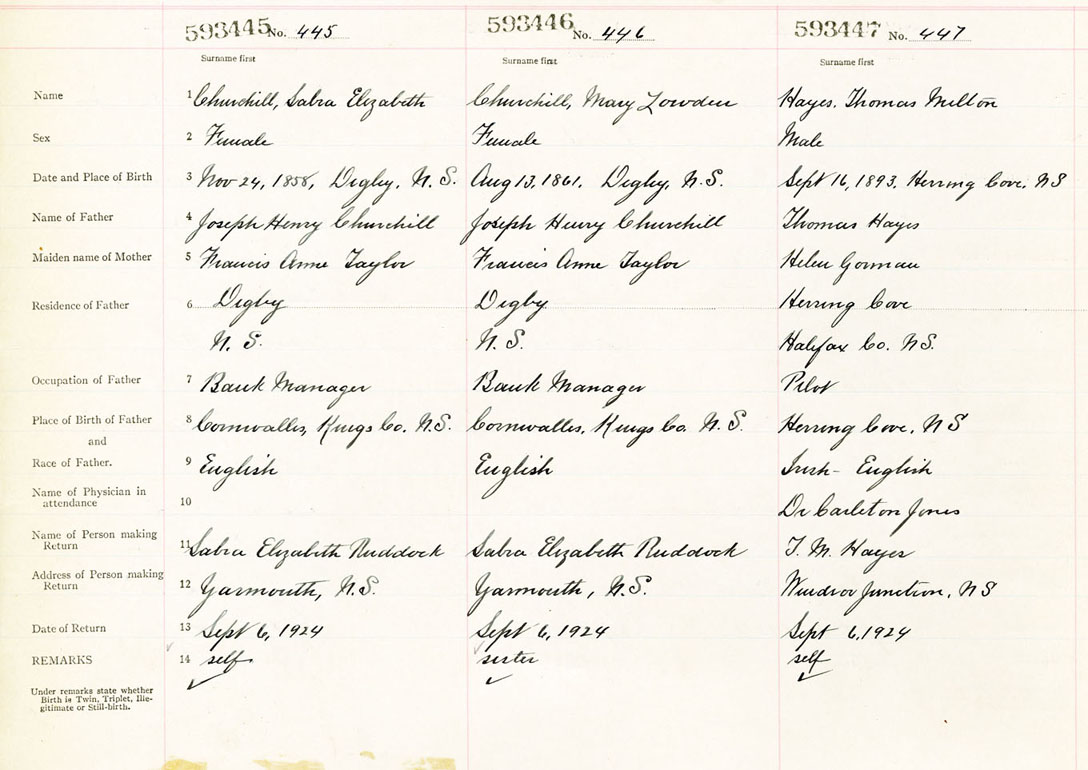 593445 No. 445 593446 No. 446 593447 No. 447
Surname first Surname first Surname first
Name 1 Churchill, Sabra Elizabeth Churchill, Mary Lowden Hayes. Thomas Milton
Sex 2 Female Female Male
Date and Place of Birth 3 Nov 24, 1858, Digby, N.S. Aug 13, 1861, Digby, N.S. Sept 16, 1893, Herring Cove, NS
Name of Father 4 Joseph Henry Churchill Joseph Henry Churchill Thomas Hayes
Maiden name of Mother 5 Francis Anne Taylor Francis Anne Taylor Helen Gorman
Residence of Father 6 Digby Digby Herring Cove
N.S. N.S. Halifax Co. NS.
Occupation of Father 7 Bank Manager Bank Manager Pilot
Place of Birth of Father 8 Cornwallis, Kings Co. N.S. Cornwallis, Kings Co. N.S. Herring Cove, NS
and
Race of Father. 9 English English Irish - English
Name of Physician in
attendance 10 Dr Carleton Jones
Name of Person making
Return 11 Sabra Elizabeth Ruddock Sabra Elizabeth Ruddock T. M. Hayes
Address of Person making
Return 12 Yarmouth, N.S. Yarmouth, N.S. Windsor Junction, NS
Date of Return 13 Sept 6, 1924 Sept 6, 1924 Sept 6, 1924
REMARKS 14 self sister self
Under remarks state whether
Birth is Twin, Triplet, Ille-
gitimate or Still-birth.